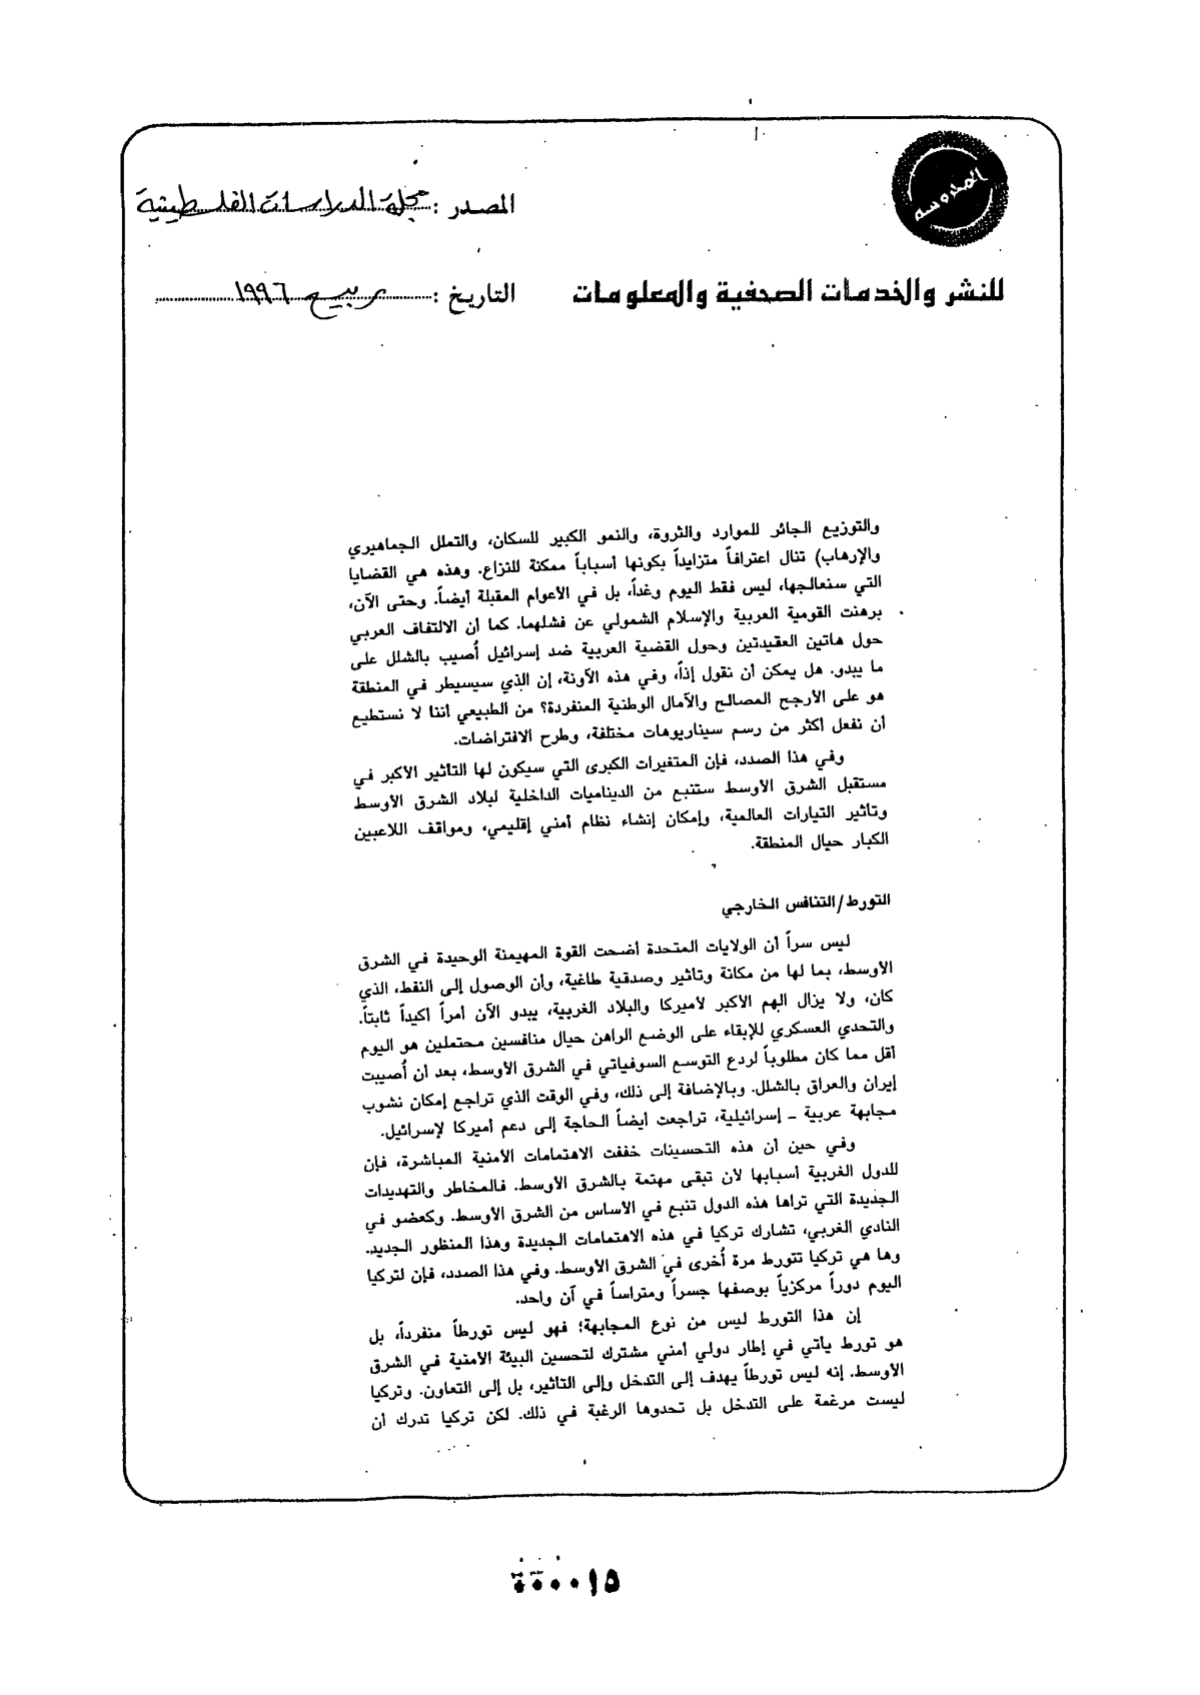 المحروسة
المصدر : مجلة الدراسات الفلسطينية
للنشر والخدمات الصحفية والمعلومات
التاريخ : ربيع ١٩٩٦
والتوزيع الجائر للموارد والثروة، والنمو الكبير للسكان، والتملل الجماهيري
والإرهاب) تنال اعترافاً متزايداً بكونها أسباباً ممكنة للنزاع. وهذه هي القضايا
التي سنعالجها، ليس فقط اليوم وغداً، بل في الأعوام المقبلة أيضاً. وحتى الآن،
برهنت القومية العربية والإسلام الشمولي عن فشلهما. كما أن الالتفاف العربي
حول هاتين العقيدتين وحول القضية العربية ضد إسرائيل أُصيب بالشلل على
ما يبدو. هل يمكن أن نقول إذاً، وفي هذه الآونة، إن الذي سيسيطر في المنطقة
هو على الأرجح المصالح والآمال الوطنية المنفردة؟ من الطبيعي أننا لا نستطيع
أن نفعل أكثر من رسم سيناريوهات مختلفة، وطرح الافتراضات.
وفي هذا الصدد، فإن المتغيرات الكبرى التي سيكون لها التأثير الأكبر في
مستقبل الشرق الأوسط ستنبع من الديناميات الداخلية لبلاد الشرق الأوسط
وتأثير التيارات العالمية، وإمكان إنشاء نظام أمني إقليمي، ومواقف اللاعبين
الكبار حيال المنطقة.
التورط/التنافس الخارجي
ليس سراً أن الولايات المتحدة أضحت القوة المهيمنة الوحيدة في الشرق
الأوسط، بما لها من مكانة وتأثير وصدقية طاغية، وأن الوصول إلى النفط، الذي
كان، ولا يزال الهم الأكبر لأميركا والبلاد الغربية، يبدو الآن أمراً أكيداً ثابتاً.
والتحدي العسكري للإبقاء على الوضع الراهن حيال منافسين محتملين هو اليوم
أقل مما كان مطلوباً لردع التوسع السوفياتي في الشرق الأوسط، بعد أن أُصيبت
إيران والعراق بالشلل. وبالإضافة إلى ذلك، وفي الوقت الذي تراجع إمكان نشوب
مجابهة عربية ــ إسرائيلية، تراجعت أيضاً الحاجة إلى دعم أميركا لإسرائيل.
وفي حين أن هذه التحسينات خففت الاهتمامات الأمنية المباشرة، فإن
للدول الغربية أسبابها لأن تبقى مهتمة بالشرق الأوسط. فالمخاطر والتهديدات
الجديدة التي تراها هذه الدول تنبع في الأساس من الشرق الأوسط. وكعضو في
النادي الغربي، تشارك تركيا في هذه الاهتمامات الجديدة وهذا المنظور الجديد.
وها هي تركيا تتورط مرة أُخرى في الشرق الأوسط. وفي هذا الصدد، فإن لتركيا
اليوم دوراً مركزياً بوصفها جسراً ومتراساً في آن واحد.
إن هذا التورط ليس من نوع المجابهة؛ فهو ليس تورطاً منفرداً، بل
هو تورط يأتي في إطار دولي أمني مشترك لتحسين البيئة الأمنية في الشرق
الأوسط. إنه ليس تورطاً يهدف إلى التدخل وإلى التأثير، بل إلى التعاون. وتركيا
ليست مرغمة على التدخل بل تحدوها الرغبة في ذلك. لكن تركيا تدرك أن
٠٠٠٠١٥